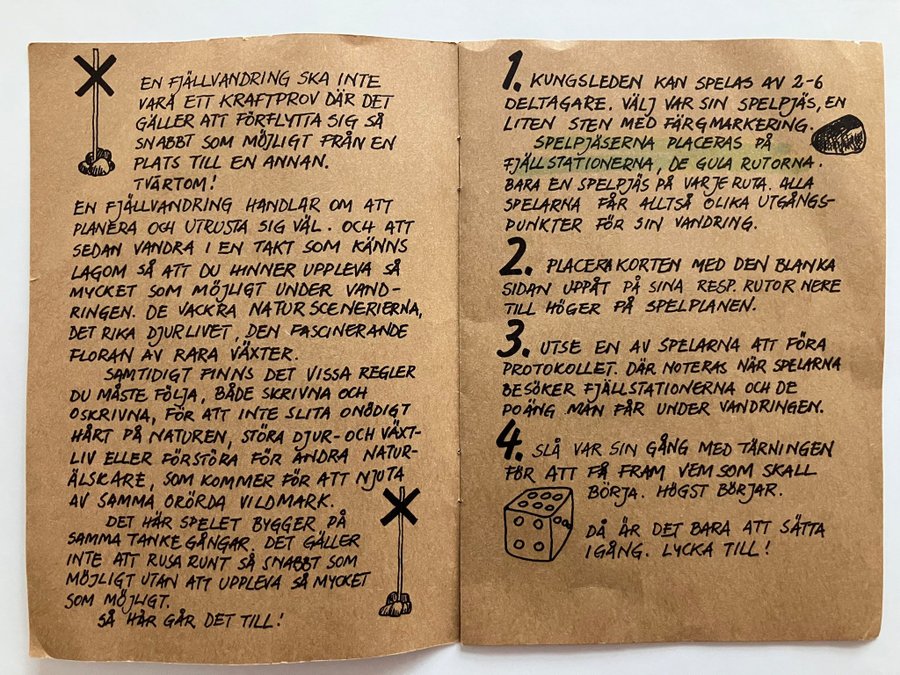 EN FJÄLLVANDRING SKA INTE
VARA ETT KRAFTPROV DÄR DET
GÄLLER ATT FÖRFLYTTA SIG SÅ
SNABBT SOM MÖJLIGT FRÅN EN
PLATS TILL EN ANNAN.
TVÄRTOM!
EN FJÄLLVANDRING HANDLAR OM ATT
PLANERA OCH UTRUSTA SIG VÄL. OCH ATT
SEDAN VANDRA I EN TAKT SOM KÄNNS
LAGOM SÅ ATT DU HINNER UPPLEVA SÅ
MYCKET SOM MÖJLIGT UNDER VAND-
RINGEN. DE VACKRA NATURSCENERIERNA,
DET RIKA DJURLIVET, DEN FASCINERANDE
FLORAN AV RARA VÄXTER.
SAMTIDIGT FINNS DET VISSA REGLER
DU MÅSTE FÖLJA, BÅDE SKRIVNA OCH
OSKRIVNA, FÖR ATT INTE SLITA ONÖDIGT
HÅRT PÅ NATUREN, STÖRA DJUR- OCH VÄXT-
LIV ELLER FÖRSTÖRA FÖR ANDRA NATUR-
ÄLSKARE, SOM KOMMER FÖR ATT NJUTA
AV SAMMA ORÖRDA VILDMARK.
DET HÄR SPELET BYGGER PÅ
SAMMA TANKEGÅNGAR. DET GÄLLER
INTE ATT RUSA RUNT SÅ SNABBT SOM
MÖJLIGT UTAN ATT UPPLEVA SÅ MYCKET
SOM MÖJLIGT.
SÅ HÄR GÅR DET TILL!
1. KUNGSLEDEN KAN SPELAS AV 2-6
DELTAGARE. VÄLJ VAR SIN SPELPJÄS, EN
LITEN STEN MED FÄRGMARKERING.
SPELPJÄSERNA PLACERAS PÅ
FJÄLLSTATIONERNA, DE GULA RUTORNA.
BARA EN SPELPJÄS PÅ VARJE RUTA. ALLA
SPELARNA FÅR ALLTSÅ OLIKA UTGÅNGS-
PUNKTER FÖR SIN VANDRING.
2. PLACERA KORTEN MED DEN BLANKA
SIDAN UPPÅT PÅ SINA RESP. RUTOR NERE
TILL HÖGER PÅ SPELPLANEN.
3. UTSE EN AV SPELARNA ATT FÖRA
PROTOKOLLET. DÄR NOTERAS NÄR SPELARNA
BESÖKER FJÄLLSTATIONERNA OCH DE
POÄNG MAN FÅR UNDER VANDRINGEN.
4. SLÅ VAR SIN GÅNG MED TÄRNINGEN
FÖR ATT FÅ FRAM VEM SOM SKALL
BÖRJA. HÖGST BÖRJAR.
DÅ ÄR DET BARA ATT SÄTTA
IGÅNG. LYCKA TILL!